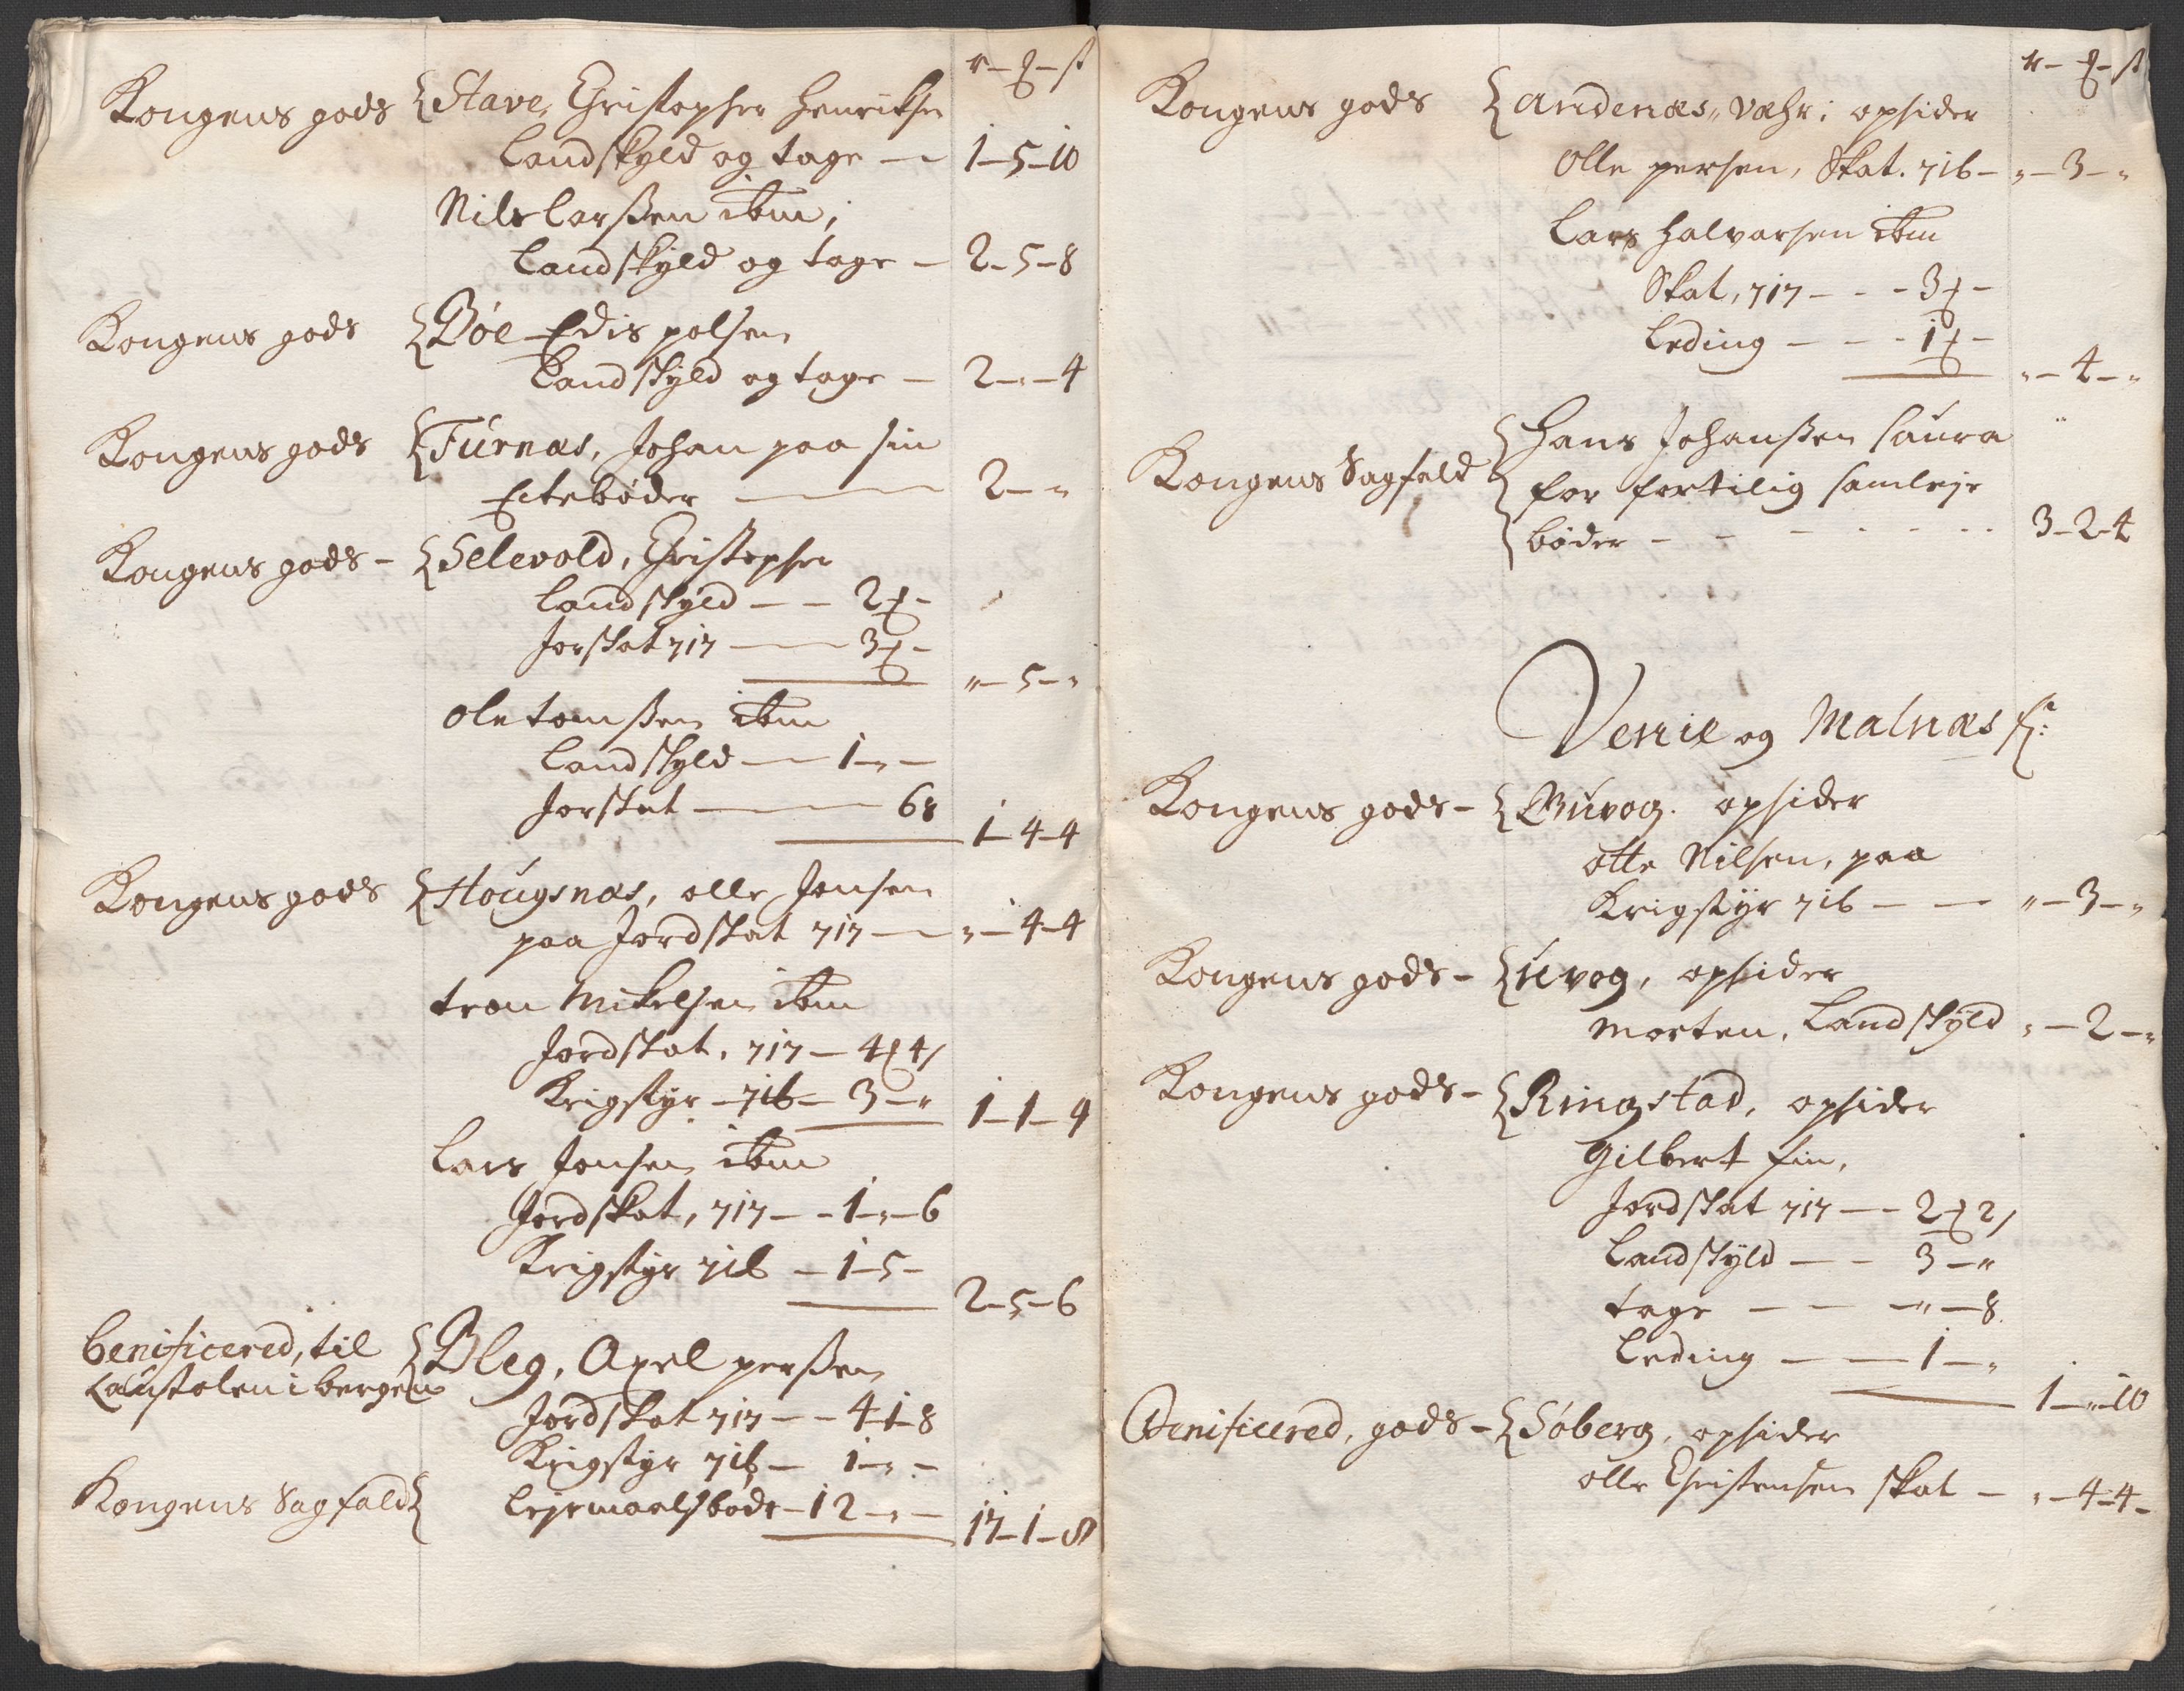 r – ʒ – s
Kongens gods { Stave, Christopher Henriksen
Landskyld og tage — 1 – 5 – 10
Nils Larssen ibm;
Landskyld og tage — 2 – 5 – 8
Kongens gods { Böe Edis polsen
Landskyld og tage — 2 – „ – 4
Kongens gods { Turnæs, Johan paa sin
Ectebøder — 2 – „
Kongens gods – { Selevold, Christopher
Landskyld — – 2ʒ –
Jorskat 717 — 3ʒ –
„ – 5 – „
Ole tomssen ibm
Landskyld — 1 – „ –
Jorskat — 68
1 – 4 – 4
Kongens gods { Hougsnæs, olle Jonsen
paa Jordskat 717 — „ – 4 – 4
tron Mikelsen ibm
Jordskat, 717 – 4ʒ 4s
Krigstyr – 716 – 3 – „
1 – 1 – 4
Lars Jonsen ibm
Jordskat, 717 – – 1 – „ – 6
Krigstyr 716 – 1 – 5 –
2 – 5 – 6
benificered, til { Bleg, Axel perssen
Laustolen i bergen
Jordskat 717 – – 4 – 1 – 8
Krigstyr 716 – 1 – „ –
Kongens Sagfald { Lejermaalsbøde – 12 – „ –
17 – 1 – 8
r – ʒ – s
Kongens gods { Andenæs „ Væhr; opsider
Olle persen, Skat. 716 – „ – 3 – „
Lars Halvarsen ibm
Skat, 717 – – – 3ʒ –
Leding – – – 1ʒ –
„ – 4 – „
{ Hans Johanssen Saura
Kongens Sagfald { for fortilig samleje
{ bøder – – – – – – 3 – 2 – 4
Venie og Malnæs f:
Kongens gods – { Guvog. opsider
Otte Nilsen, paa
Krigstyr 716 — — „ – 3 – „
Kongens gods – { Uvog, opsider
Morten, Landskyld „ – 2 – „
Kongens gods – { Ringstad, opsider
Gilbert fin,
Jordskat 717 — – 2ʒ 2s
Landskyld — – 3 – „
tage — — „ – 8
Leding — — 1 – „
1 – „ – 10
Benificered, gods – { Søberg, opsider
olle Christensen skat – „ – 4 – 4 –